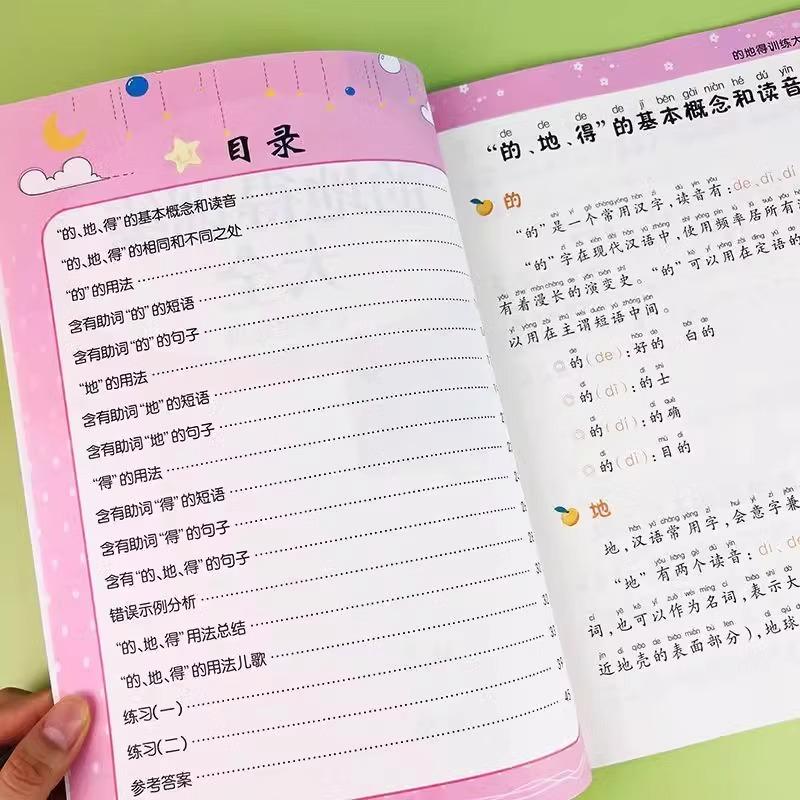 目录
“的、地、得”的基本概念和读音
“的、地、得”的相同和不同之处
“的”的用法
含有助词“的”的短语
含有助词“的”的句子
“地”的用法
含有助词“地”的短语
含有助词“地”的句子
“得”的用法
含有助词“得”的短语
含有助词“得”的句子
含有“的、地、得”的句子
错误示例分析
“的、地、得”用法总结
“的、地、得”的用法儿歌
练习(一)
练习(二)
参考答案
的地得训练大
de de de de jī běn gài niàn hé dú yīn
“的、地、得”的基本概念和读音
的
shì yí gè cháng yòng hàn zì dú yīn yǒu
“的”是一个常用汉字,读音有:de、dī、dí
zì zài xiàn dài hàn yǔ zhōng
“的”字在现代汉语中,使用频率居所有汉
有着漫长的演变史。“的”可以用在定语的
以用在主谓短语中间。
de hǎo de bái de
的(de):好的 白的
dī dī shì
的(dī):的士
dí dí què
的(dí):的确
dì mù dì
的(dì):目的
地
hàn yǔ cháng yòng zì huì yì zì
地,汉语常用字,会意字兼
yǒu liǎng gè dú yīn
“地”有两个读音:dì、de
词,也可以作为名词,表示大
近地壳的表面部分),地球